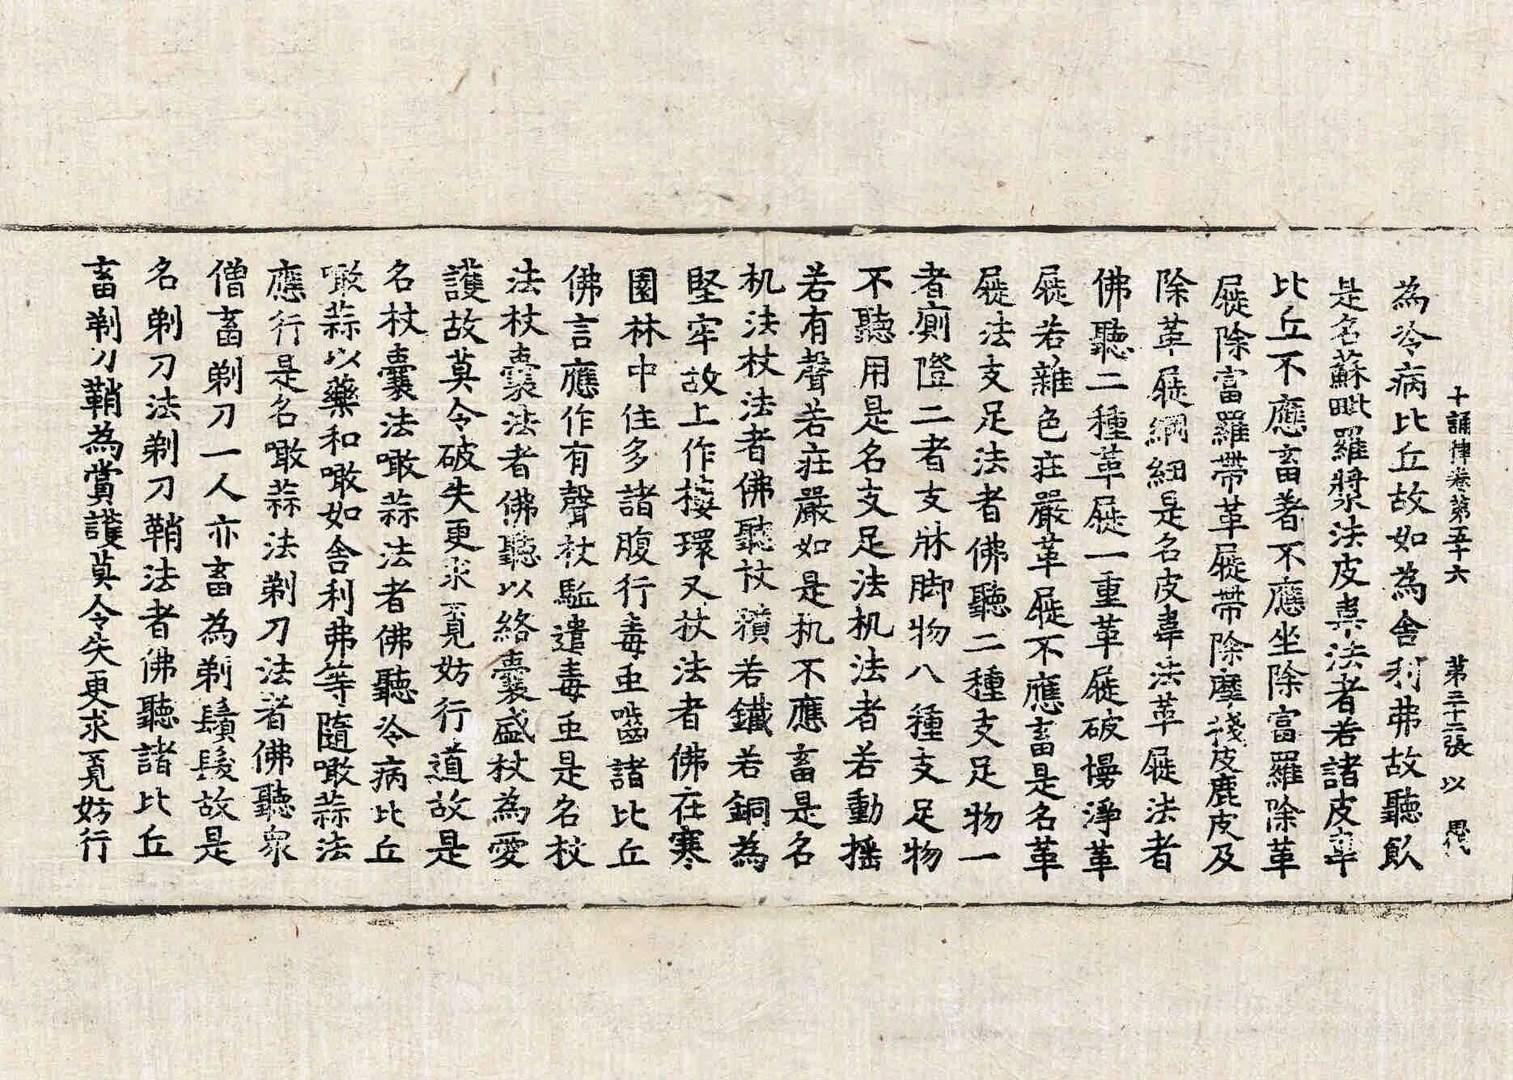 十誦律卷第五十六 第三十二張 以
為冷病比丘故如為舍利弗故聽飲
是名蘇毗羅漿法皮韋法者若諸皮韋
比丘不應畜著不應坐除富羅除革
屣除富羅帶革屣帶除摩皮鹿皮及
除革屣綱紐是名皮韋法革屣法者
佛聽二種革屣一重革屣破慢淨革
屣若雜色莊嚴革屣不應畜是名革
屣法支足法者佛聽二種支足物一
者廁隥二者支牀脚物八種支足物
不聽用是名支足法机法者若動搖
若有聲若莊嚴如是机不應畜是名
机法杖法者佛聽杖積若鐵若銅為
堅牢故上作楼環又杖法者佛在寒
園林中住多諸腹行毒虫嚙諸比丘
佛言應作有聲杖駈遣毒虫是名杖
法杖囊法者佛聽以絡囊盛杖為愛
護故莫令破失更求覓妨行道故是
名杖囊法噉蒜法者佛聽冷病比丘
噉蒜以藥和噉如舍利弗等隨噉蒜法
應行是名噉蒜法剃刀法者佛聽衆
僧畜剃刀一人亦畜為剃鬚髮故是
名剃刀法剃刀鞘法者佛聽諸比丘
畜剃刀鞘為賞護莫令失更求覓妨行